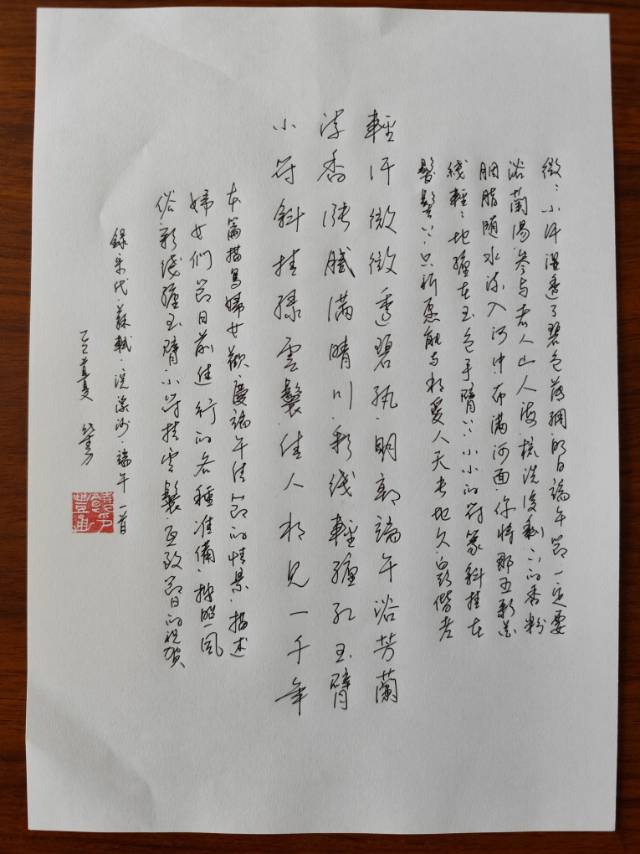 微〻小汗湿透了碧色薄绸明日端午节一定要
浴蘭湯·参与者人山人海梳洗後剩下的香粉
胭脂随水流入河中布满河面·你将那五彩花
线輕〻地纏在玉色手臂上·小小的符篆斜挂在
髮髻上·只祈愿能与相爱人天长地久·白头偕老
輕汗微微透碧紈·明朝端午浴芳蘭
流香漲膩滿晴川·彩线輕纏红玉臂
小符斜挂绿雲鬟·佳人相見一千年
本篇描寫婦女歡慶端午佳節的情景·描述
婦女們節日前進行的各種准備·按照風
俗·彩线纏玉臂·小符挂雲鬟·互致節日的祝贺
錄宋代·蘇軾·浣溪沙·端午一首
乙巳夏